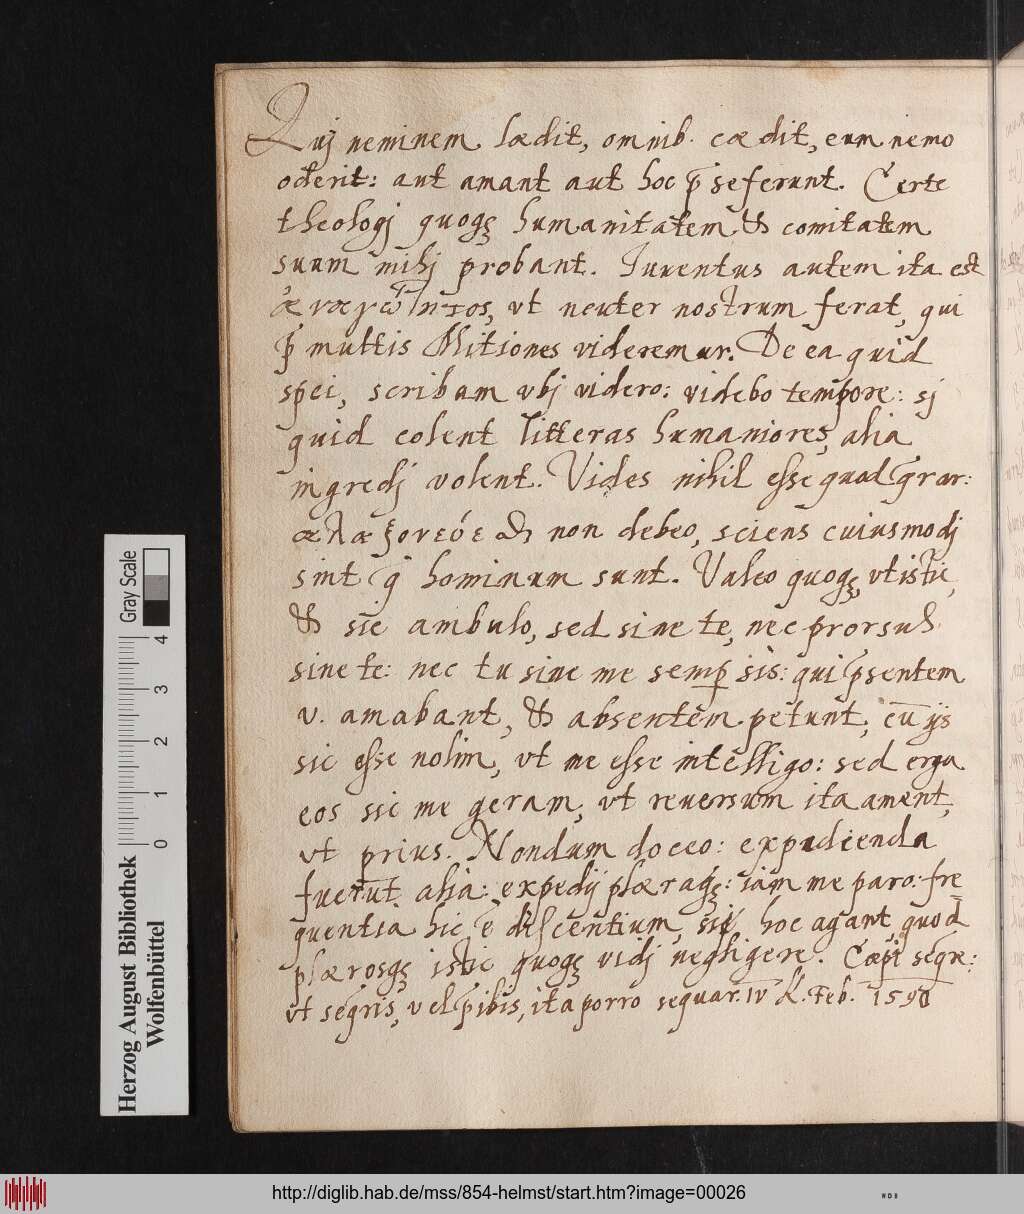 Quj neminem lædit, omnib. cædit, eum nemo
oderit: aut amant aut hoc p̃ seferunt. Certe
theologj quoqȝ humanitatem & comitatem
suum mihj probant. Iuuentus autem ita est
vt neuter nostrum ferat, qui
p̃ multis Mitiones videremur. De ea quid
spei, scribam vbj videro: videbo tempore: sj
quid colent litteras humaniores, alia
ingredj volent. Vides nihil esse quod
non debeo, sciens cuiusmodj
sint q̃ hominum sunt. Valeo quoqȝ vt istic,
& sic ambulo, sed sine te, nec prorsus
sine te: nec tu sine me semp sis: qui p̃sentem
v. amabant, & absentem petunt, cũ ijs
sic esse nolim, vt me esse intelligo: sed erga
eos sic me geram, vt reuersum ita ament,
vt prius. Nondum doceo: expedienda
fuerũt alia: expedij plæraqȝ: iam me paro: fre
quentia hic ẽ discentium, si hoc agant quod
plærosqȝ istic quoqȝ vidj negligere. Cæpi segre:
vt segris, vel p̃ibis, ita porro sequar. IV K. Feb. 1590
Gray Scale
0 1 2 3 4
Herzog August Bibliothek
Wolfenbüttel
http://diglib.hab.de/mss/854-helmst/start.htm?image=00026